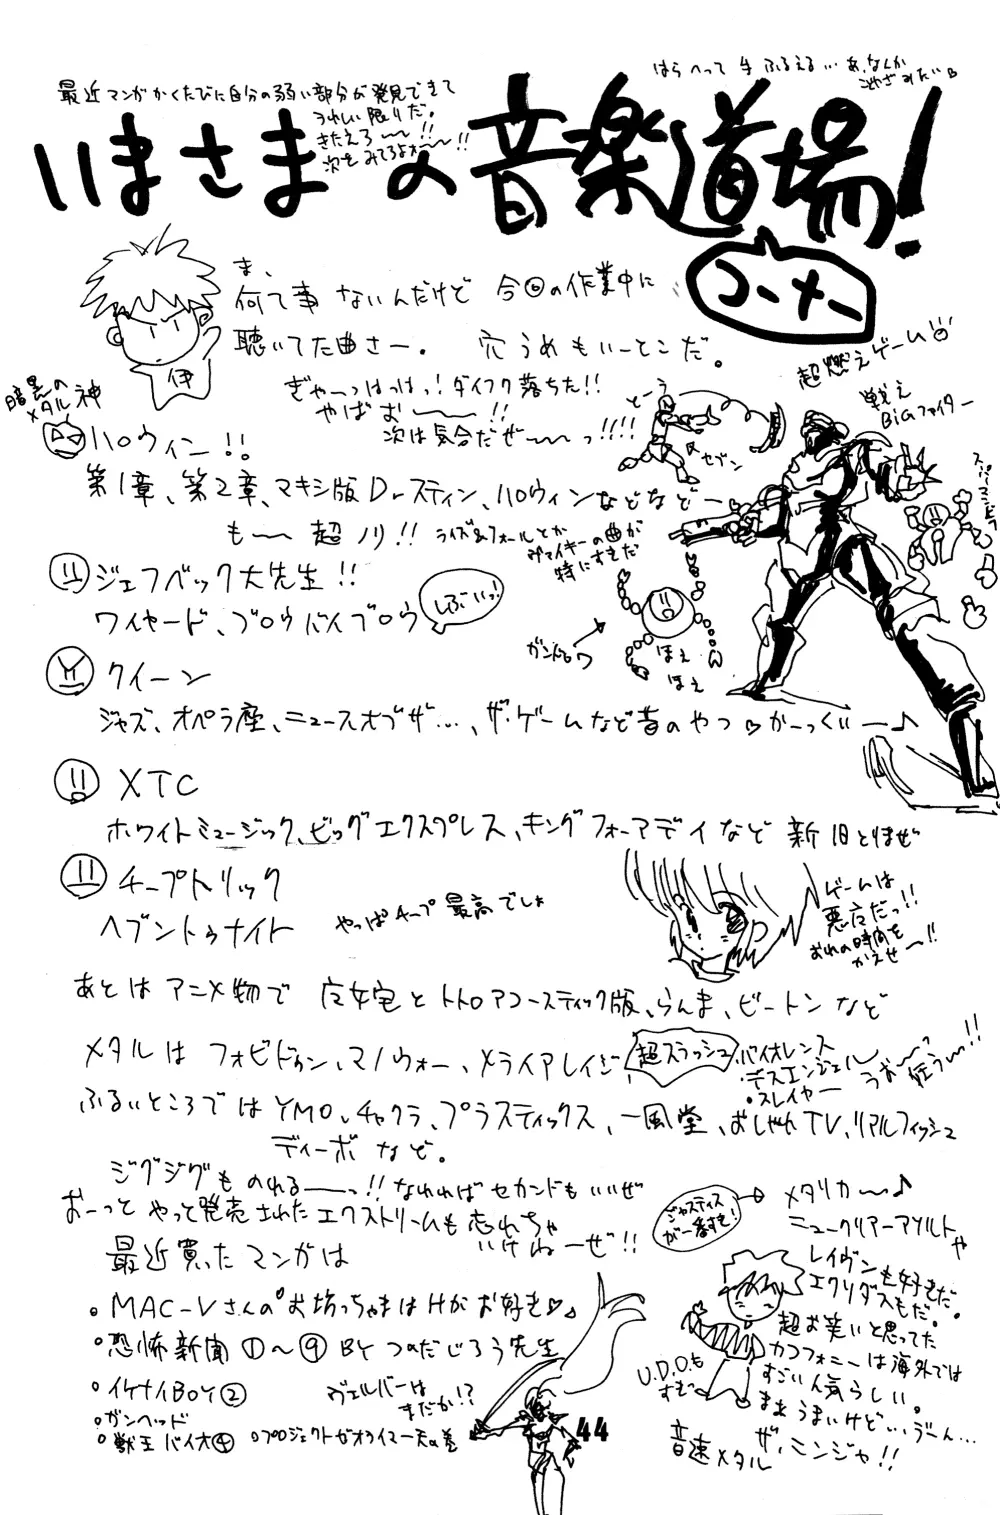 はらへって手ふるえる…あ、なんか
最近マンガかくたびに自分の弱い部分が発見できて
うれしい限りだ。
きたえろ〜〜!!
次をみてろよォ〜〜!!
いまさまの音楽道場!
コーナー
ま、
何て事ないんだけど 今回の作業中に
聴いてた曲さー。 穴うめもいーとこだ。
伊
ぎゃーっはっはっ!ダイフク落ちた!!
やばお〜〜!!
次は気合だぜ〜〜っ!!!!
超燃えゲーム
戦え
BiGファイター
セブン
暗黒の
メタル神
ハロウィン!!
第1章、第2章、マキシ版Drスティン、ハロウィンなどなどー
も〜〜超ノリ!!
ライズ&フォールとか
ヴァイキーの曲が
特にすきだ
ジェフベック大先生!!
ワイヤード、ブロウバイブロウ
しぶいっ!
ほえ
ほえ
クイーン
ジャズ、オペラ座、ニュースオブザ…、ザ・ゲームなど昔のやつ♡かーっくいー♪
XTC
ホワイトミュージック、ビッグエクスプレス、キングフォーアデイなど新旧とりまぜ
チープトリック
ヘブントゥナイト
やっぱチープ最高でしょ
ゲームは
悪魔だっ!!
おれの時間を
かえせ〜!!
あとはアニメ物で 魔女宅とトトロアコースティック版、らんま、ビートンなど
メタルは フォビドゥン、マノウォー、メライアレイジ
超スラッシュ
・バイオレンス
・デスエンジェル
・スレイヤー
うお〜〜っ
狂う〜!!
ふるいところではYMO、チャクラ、プラスティックス、一風堂、おしゃれTV、リアルフィッシュ
ディーボなど。
ジグジグものれる〜〜っ!!なれればセカンドもいいぜ
おーっとやっと発売されたエクストリームも忘れちゃ
いけねーぜ!!
ジャスティス
が一番すき!
メタリカ〜♪
ニュークリアーアソルトや
レイヴンも好きだ。
エクソダスもだ。
超お笑いと思ってた
カコフォニーは海外では
すごい人気らしい。
まぁうまいけど…、うーん…
ザ、ニンジャ!!
U.D.O.も
すむ
音速メタル
最近買ったマンガは
・MAC-Vさんのお坊っちゃまはHがお好き♡
・恐怖新聞①〜⑨BYつのだじろう先生
・イケナイBOY②
・ガンヘッド
・獣王バイオ④
・プロジェクトゼオライマー天の巻
ヴェルバーは
まだか!?
44